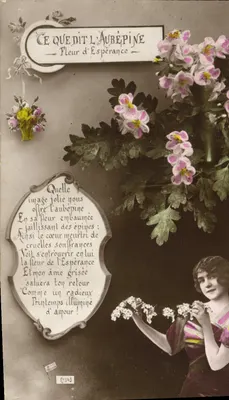 CE QUE DIT L'AUBÉPINE
Fleur d'Espérance
Quelle
image jolie nous
offre l'aubépine
En sa fleur embaumée
jaillissant des épines ;
Ainsi le cœur meurtri de
cruelles souffrances
Voit s'entr'ouvrir en lui
la fleur de l'Espérance
Et mon âme grisée
saluera ton retour
Comme un radieux
Printemps illuminé
d'amour !